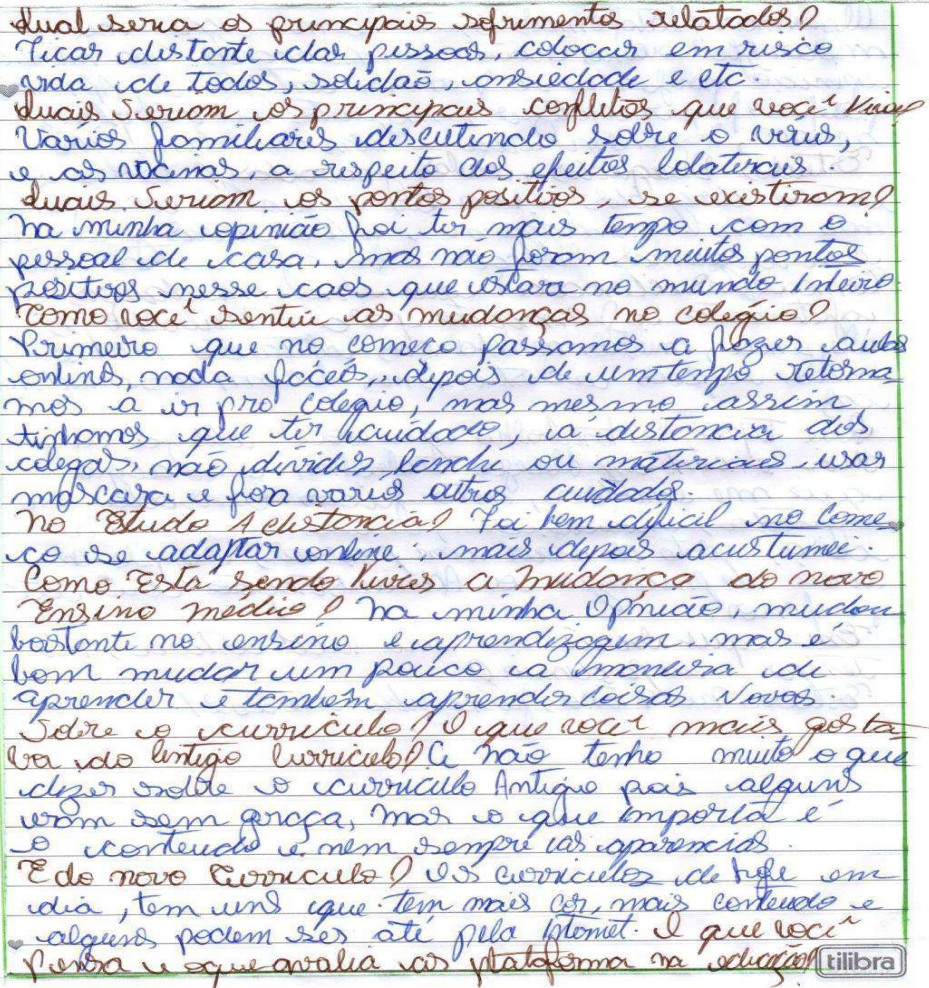 Qual seria os principais sofrimentos relatados?
Ficar distante das pessoas, colocar em risco
vida de todos, solidão, ansiedade e etc.
Quais Seriam os principais conflitos que você
Varios familiares descutindo sobre o virús,
e as vacinas, a respeito dos efeitos lolaterais.
Quais Seriam os pontos positivos, se existiram?
Na minha opinião foi ter mais tempo com o
pessoal de casa, mas não foram muitos pontos
positivos nesse caos que estara no mundo Inteiro.
Como você sentiu as mudanças no colégio?
Primeiro que no começo passamos a fazer aulas
onlines, nada fáceis, depois de um tempo retorna-
mos a ir pro colegio, mas mesmo assim
tinhamos que ter cuidado, a distancia dos
colegas, não dividir lanche ou materiais, usar
mascara e fora varios outros cuidados.
No Estudo A distancia? Foi bem dificil no come-
ço se adaptar online. mais depois acustumei.
Como Está sendo Viver a mudança do novo
Ensino médio? Na minha Opinião, mudou
bastante no ensino e aprendizagem, mas é
bom mudar um pouco a maneira de
aprender e também aprender coisas Novas.
Sobre o curriculo? O que você mais gosta-
va do Antigo Curriculo? não tenho muito o que
dizer sobre o curriculo Antigo pois alguns
eram sem graça, mas o que importa é
o conteudo e nem sempre as aparencias.
E do novo Curriculo? Os curriculos de hoje em
dia, tem uns que tem mais cor, mais conteudo e
alguns podem ser até pela Internet. O que você
Pensa e oque avalia as plataforma na educação?
tilibra